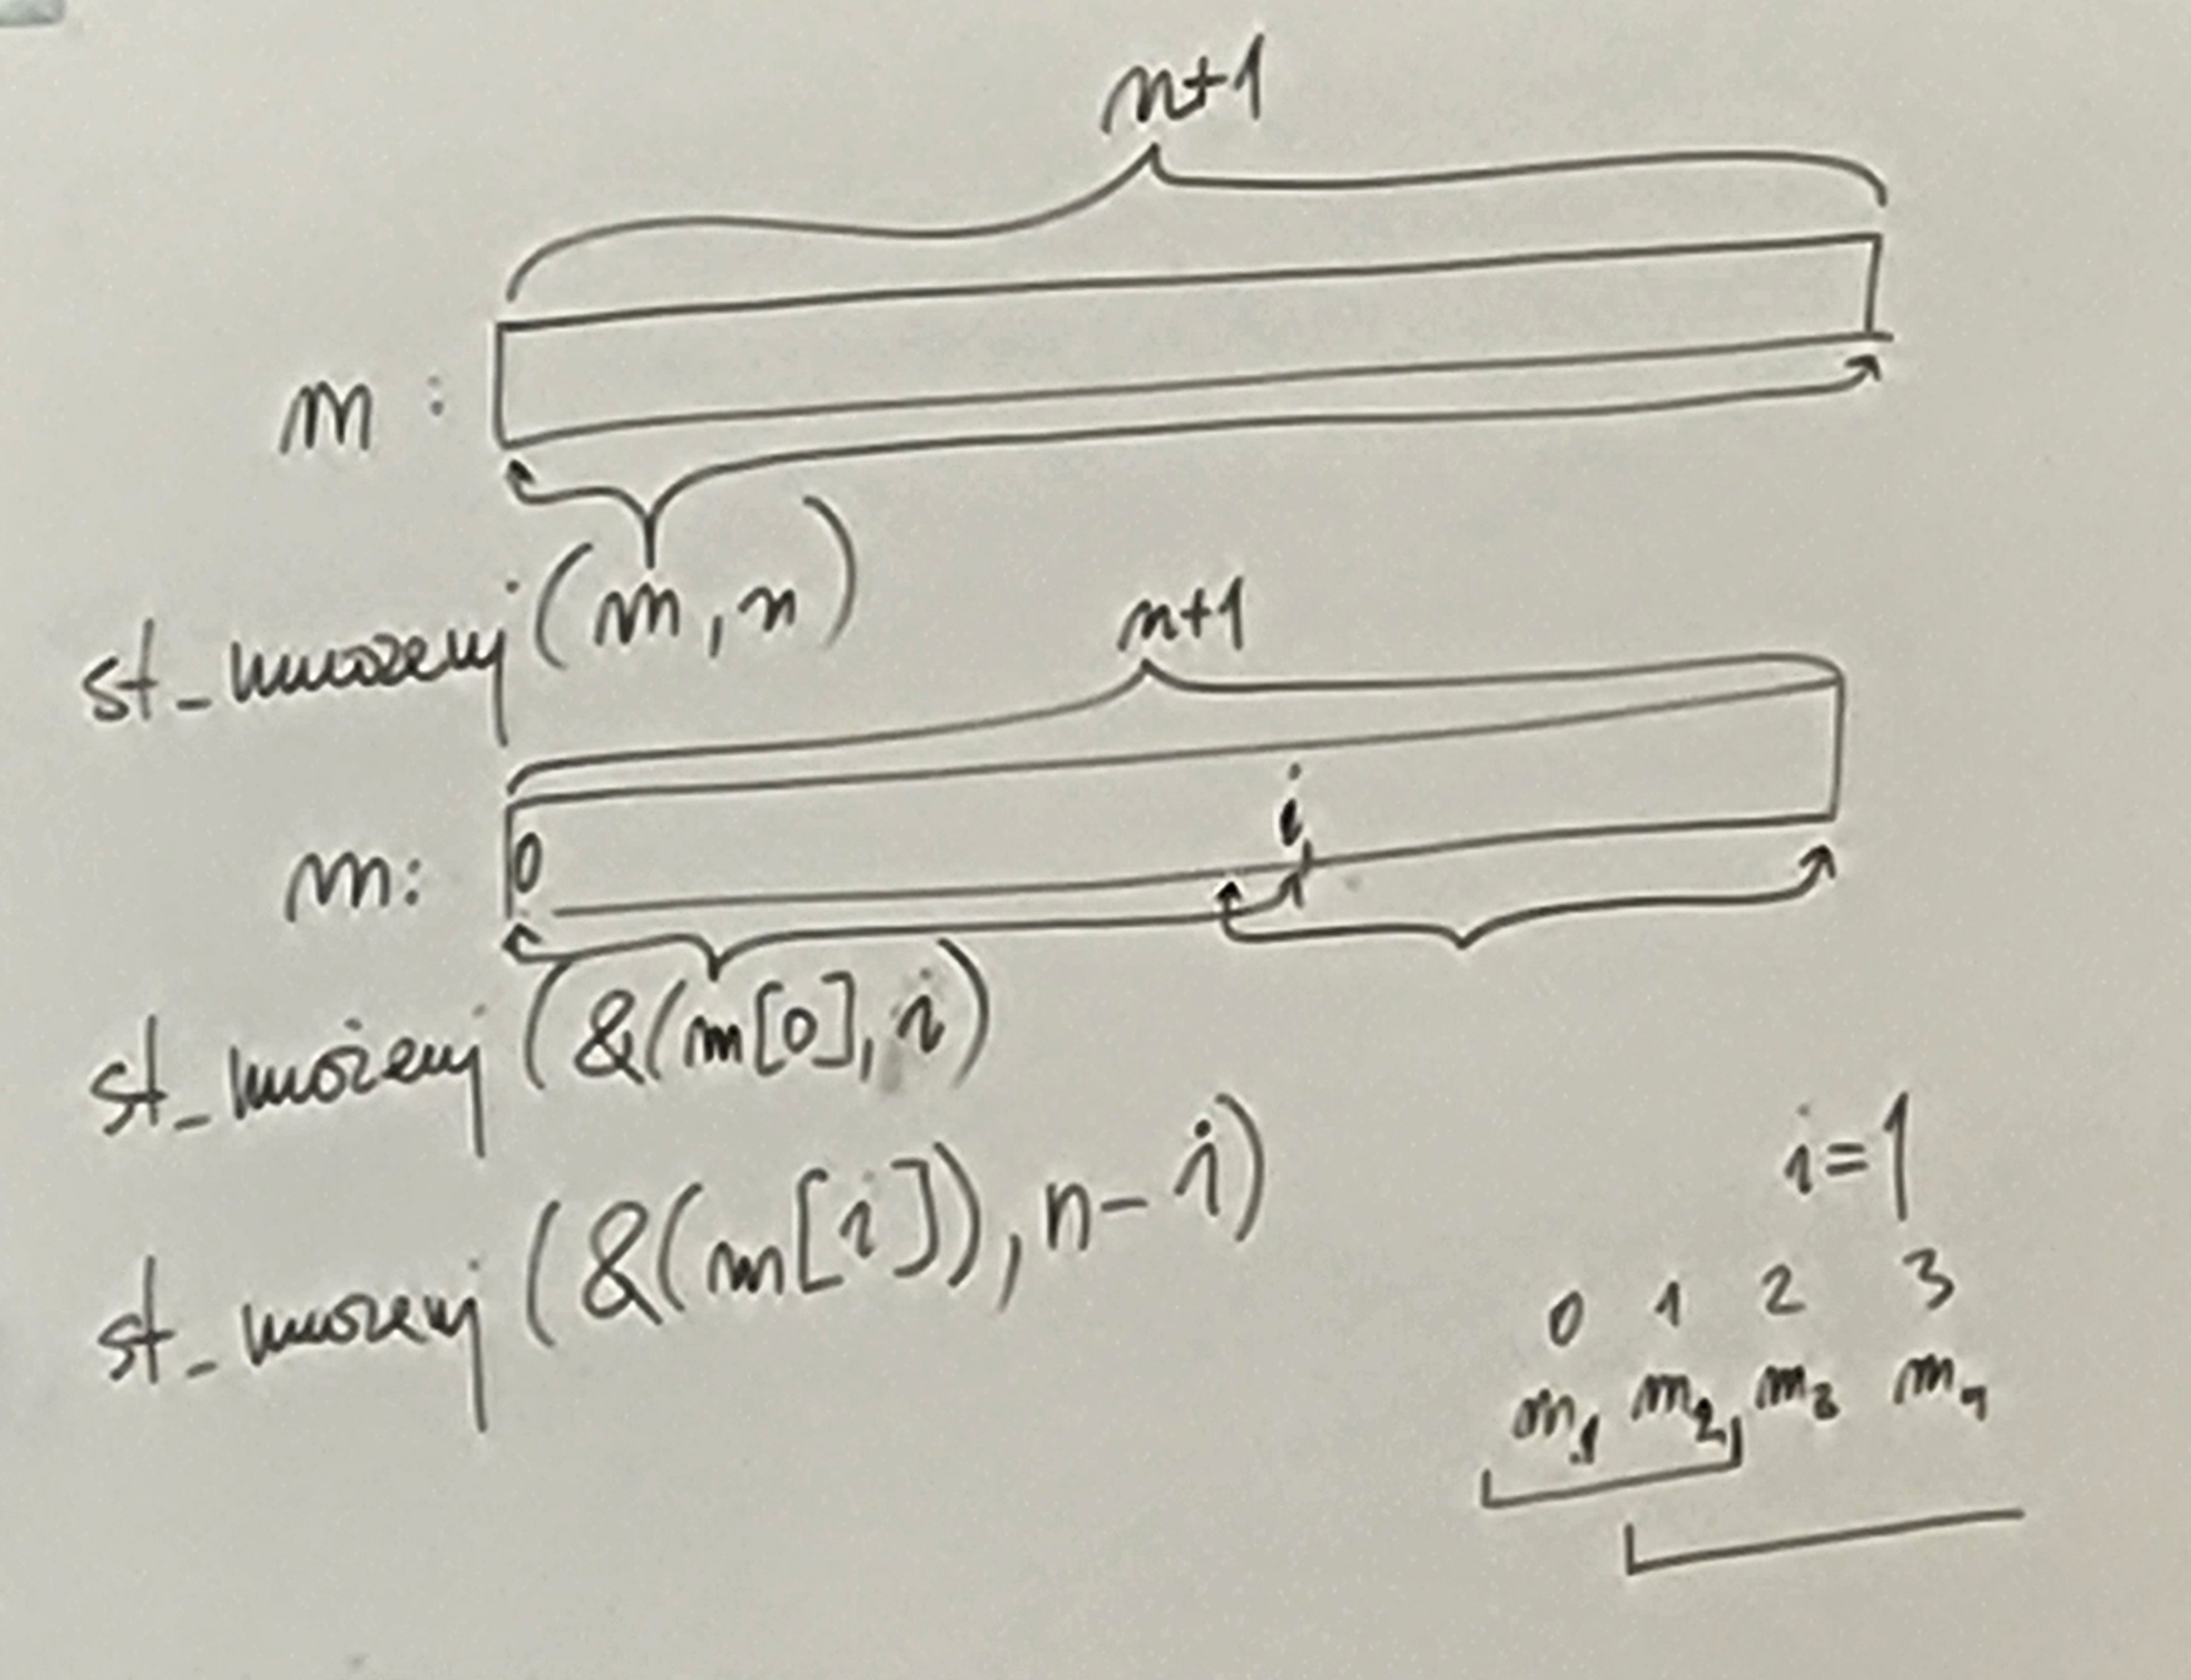 n+1
m :
st_mnozenj (m, n)
n+1
i
m: 0
st_mnozenj (&(m[0], i)
st_mnozenj (&(m[i]), n-i)
i=1
0 1 2 3
m1 m2 m3 m4